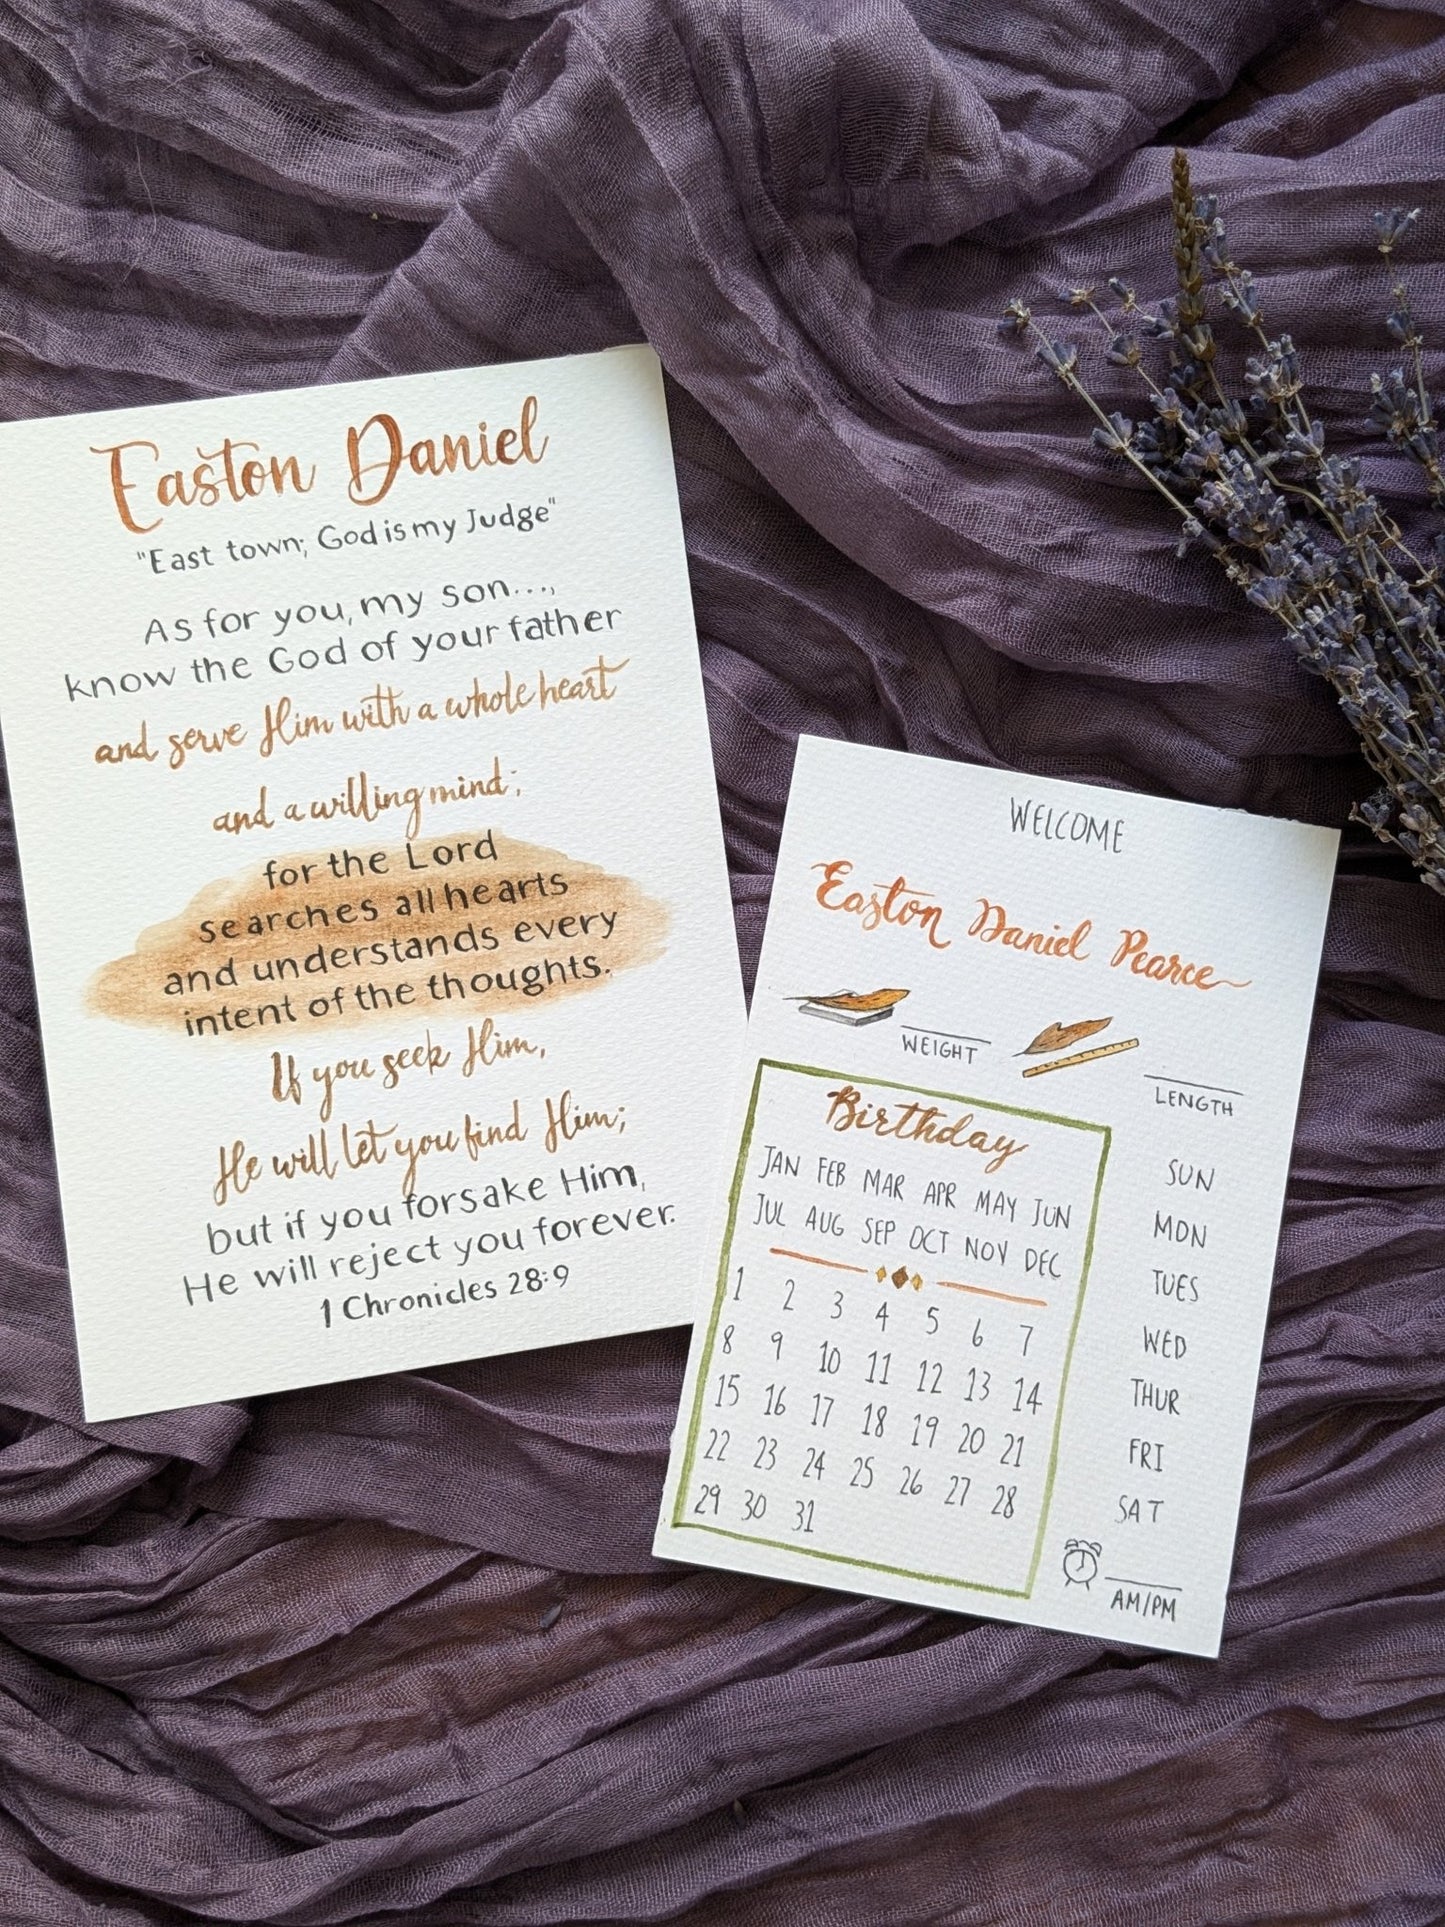 Easton Daniel
"East town; God is my Judge"
As for you, my son...,
know the God of your father
and serve Him with a whole heart
and a willing mind;
for the Lord
searches all hearts
and understands every
intent of the thoughts.
If you seek Him,
He will let you find Him;
but if you forsake Him,
He will reject you forever.
1 Chronicles 28:9
WELCOME
Easton Daniel Pearce
WEIGHT
LENGTH
Birthday
JAN FEB MAR APR MAY JUN
JUL AUG SEP OCT NOV DEC
1 2 3 4 5 6 7
8 9 10 11 12 13 14
15 16 17 18 19 20 21
22 23 24 25 26 27 28
29 30 31
SUN
MON
TUES
WED
THUR
FRI
SAT
AM/PM